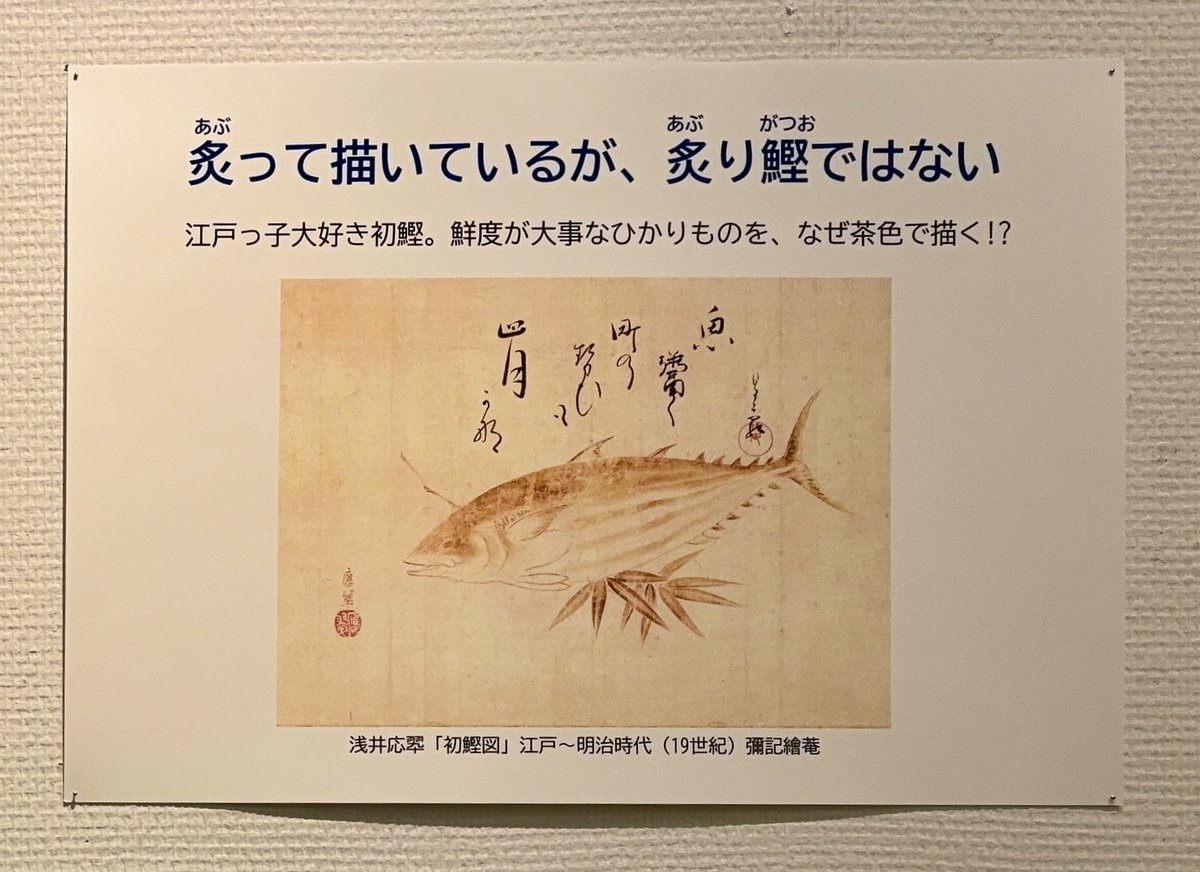 あぶ　　　　　　　　　　　　　あぶ　がつお
炙って描いているが、炙り鰹ではない
江戸っ子大好き初鰹。鮮度が大事なひかりものを、なぜ茶色で描く!?
魚
町の
四月
浅井応翠「初鰹図」江戸～明治時代（19世紀）彌記繪菴